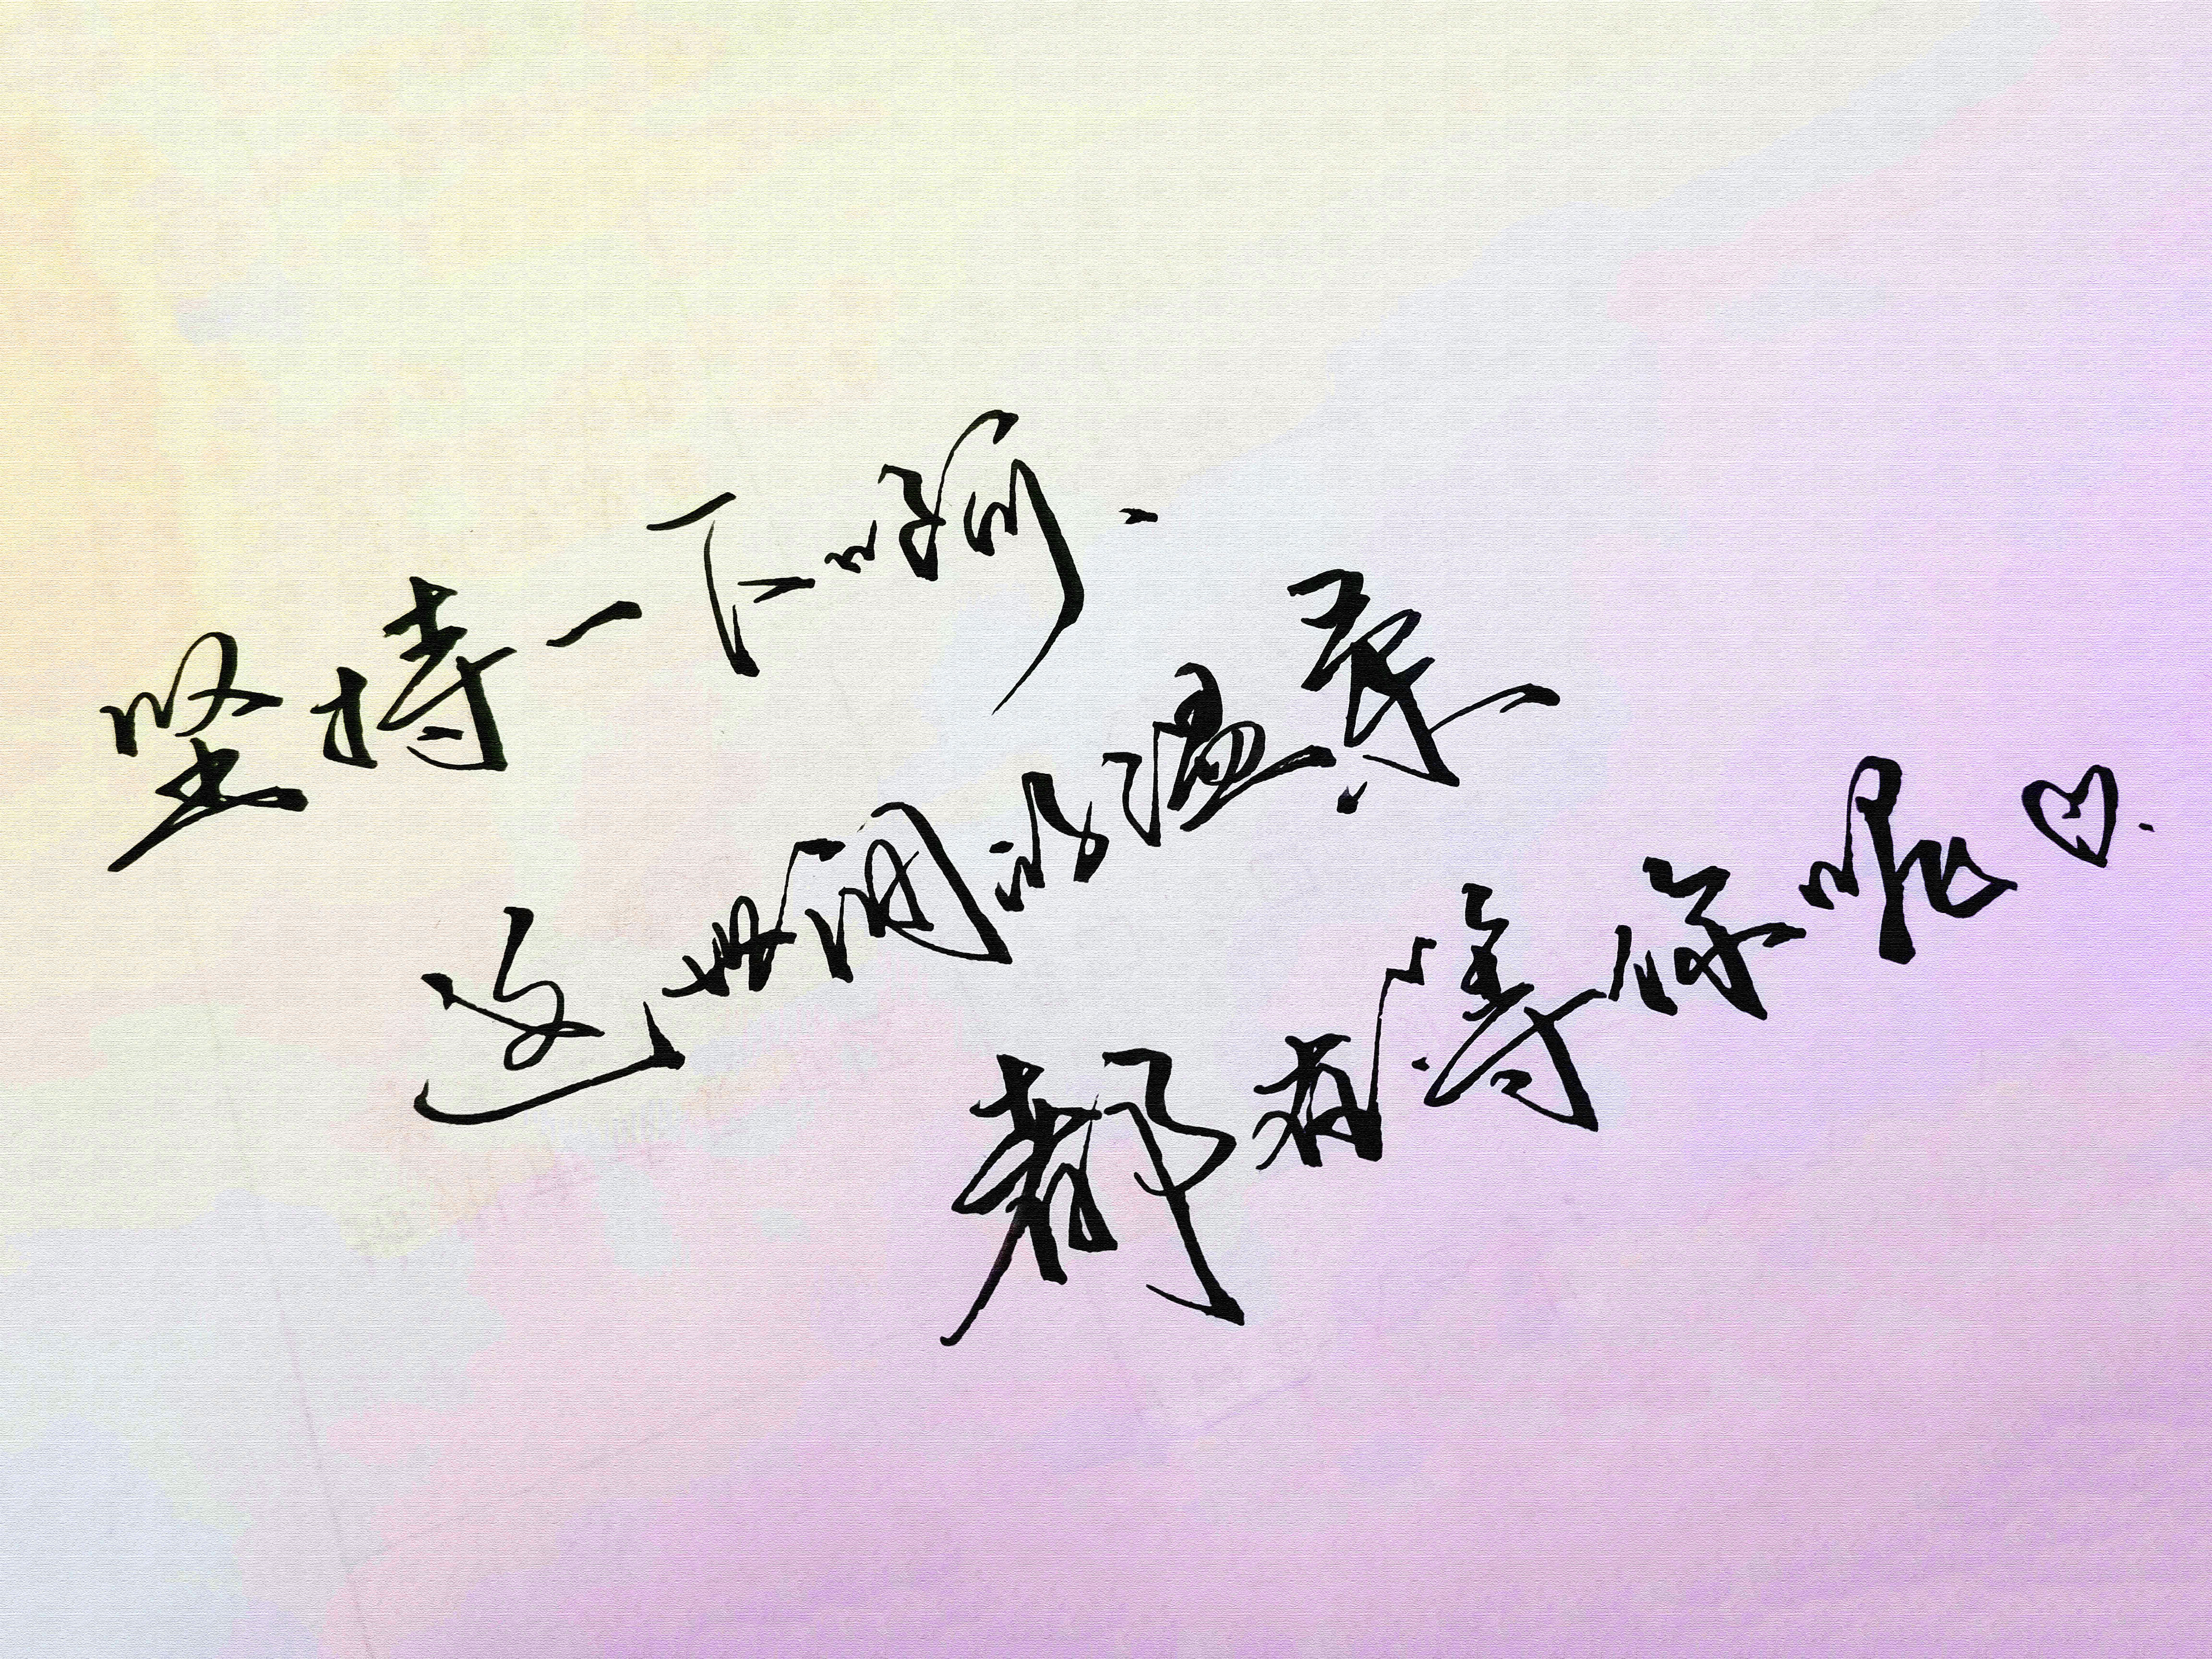 坚持一下啊.
这世间的温柔.
都在等你呢♡.